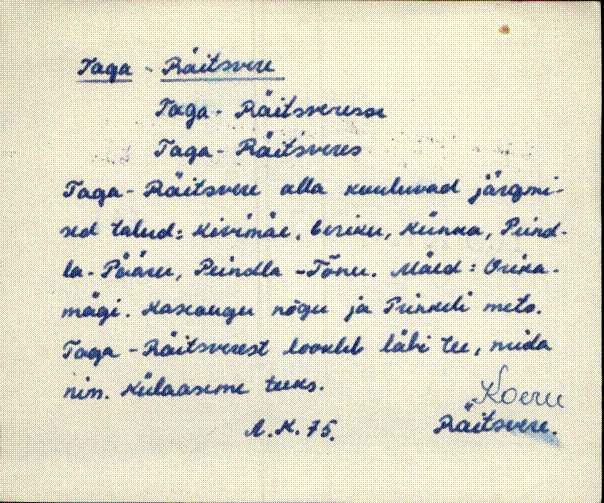 Taga - Räitsvere
Taga - Räitsveresse
Taga - Räitsveres
Taga - Räitsvere alla kuuluvad järgmi-
sed talud: Kivimäe, Künka, Pund-
la - Pääru, Pundla - Tõnu. Mäed:
mägi. Kaseaugu nõgu ja mets.
Taga - Räitsverest lookleb läbi tee, mida
nim. Külaaseme teeks.
Koeru
A. K. 75. Räitsvere.